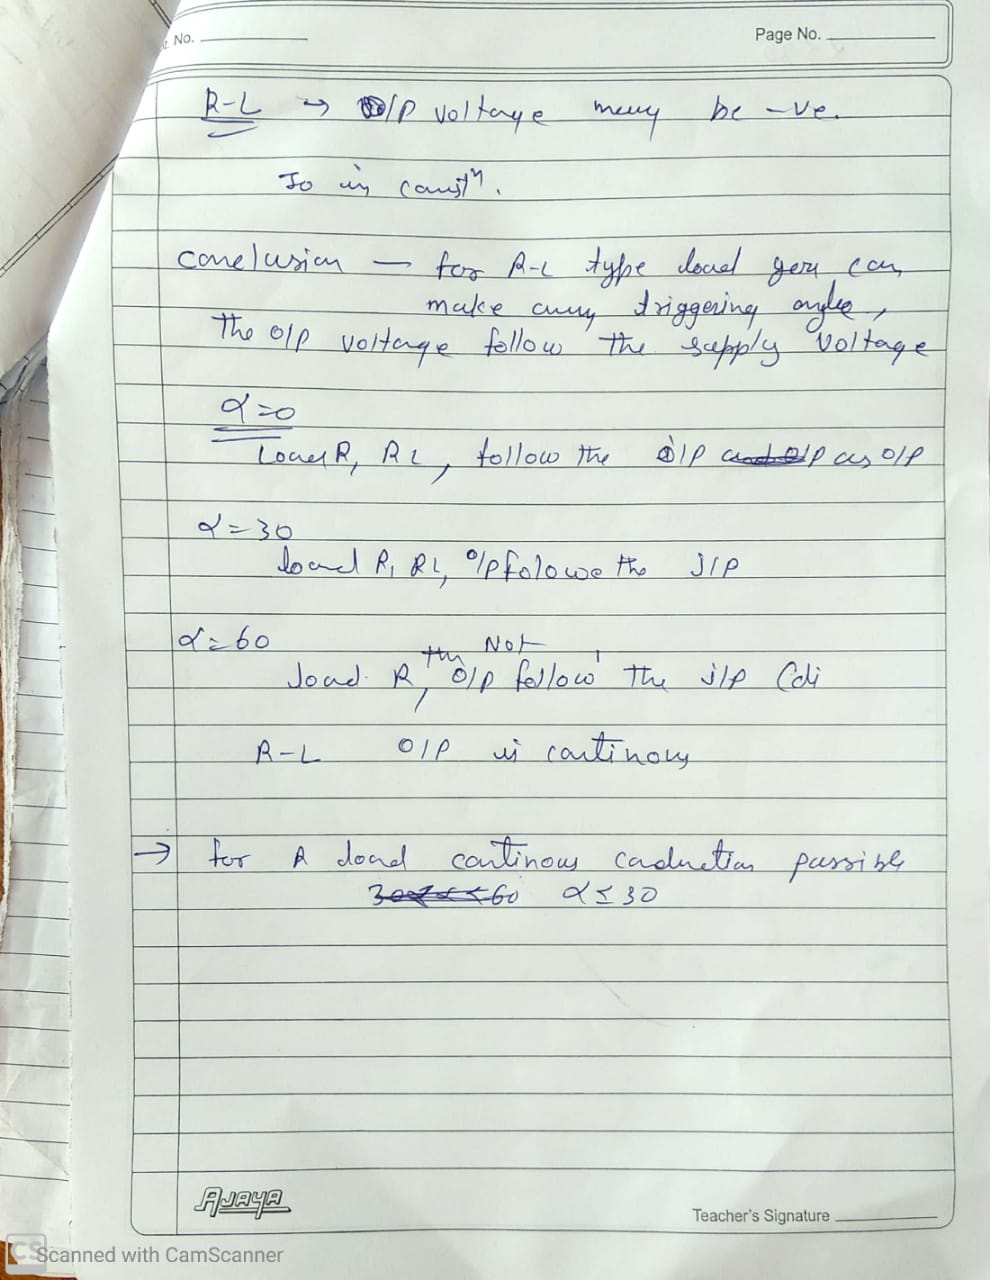 No.
Page No.
R-L → O/P voltage may be -ve.
Io is constⁿ.
conclusion — for R-L type load you can
make any triggering angle,
the O/P voltage follow the supply voltage
α=0
Load R, RL, follow the O/P as O/P
α=30
load R, RL, O/P folowe the I/P
α=60
load. R, the O/P Not follow the i/P (di
R-L O/P is continous
→ for R load continous conduction possible
30≤α≤60 α≤30
AJAYA
Teacher's Signature
CS Scanned with CamScanner